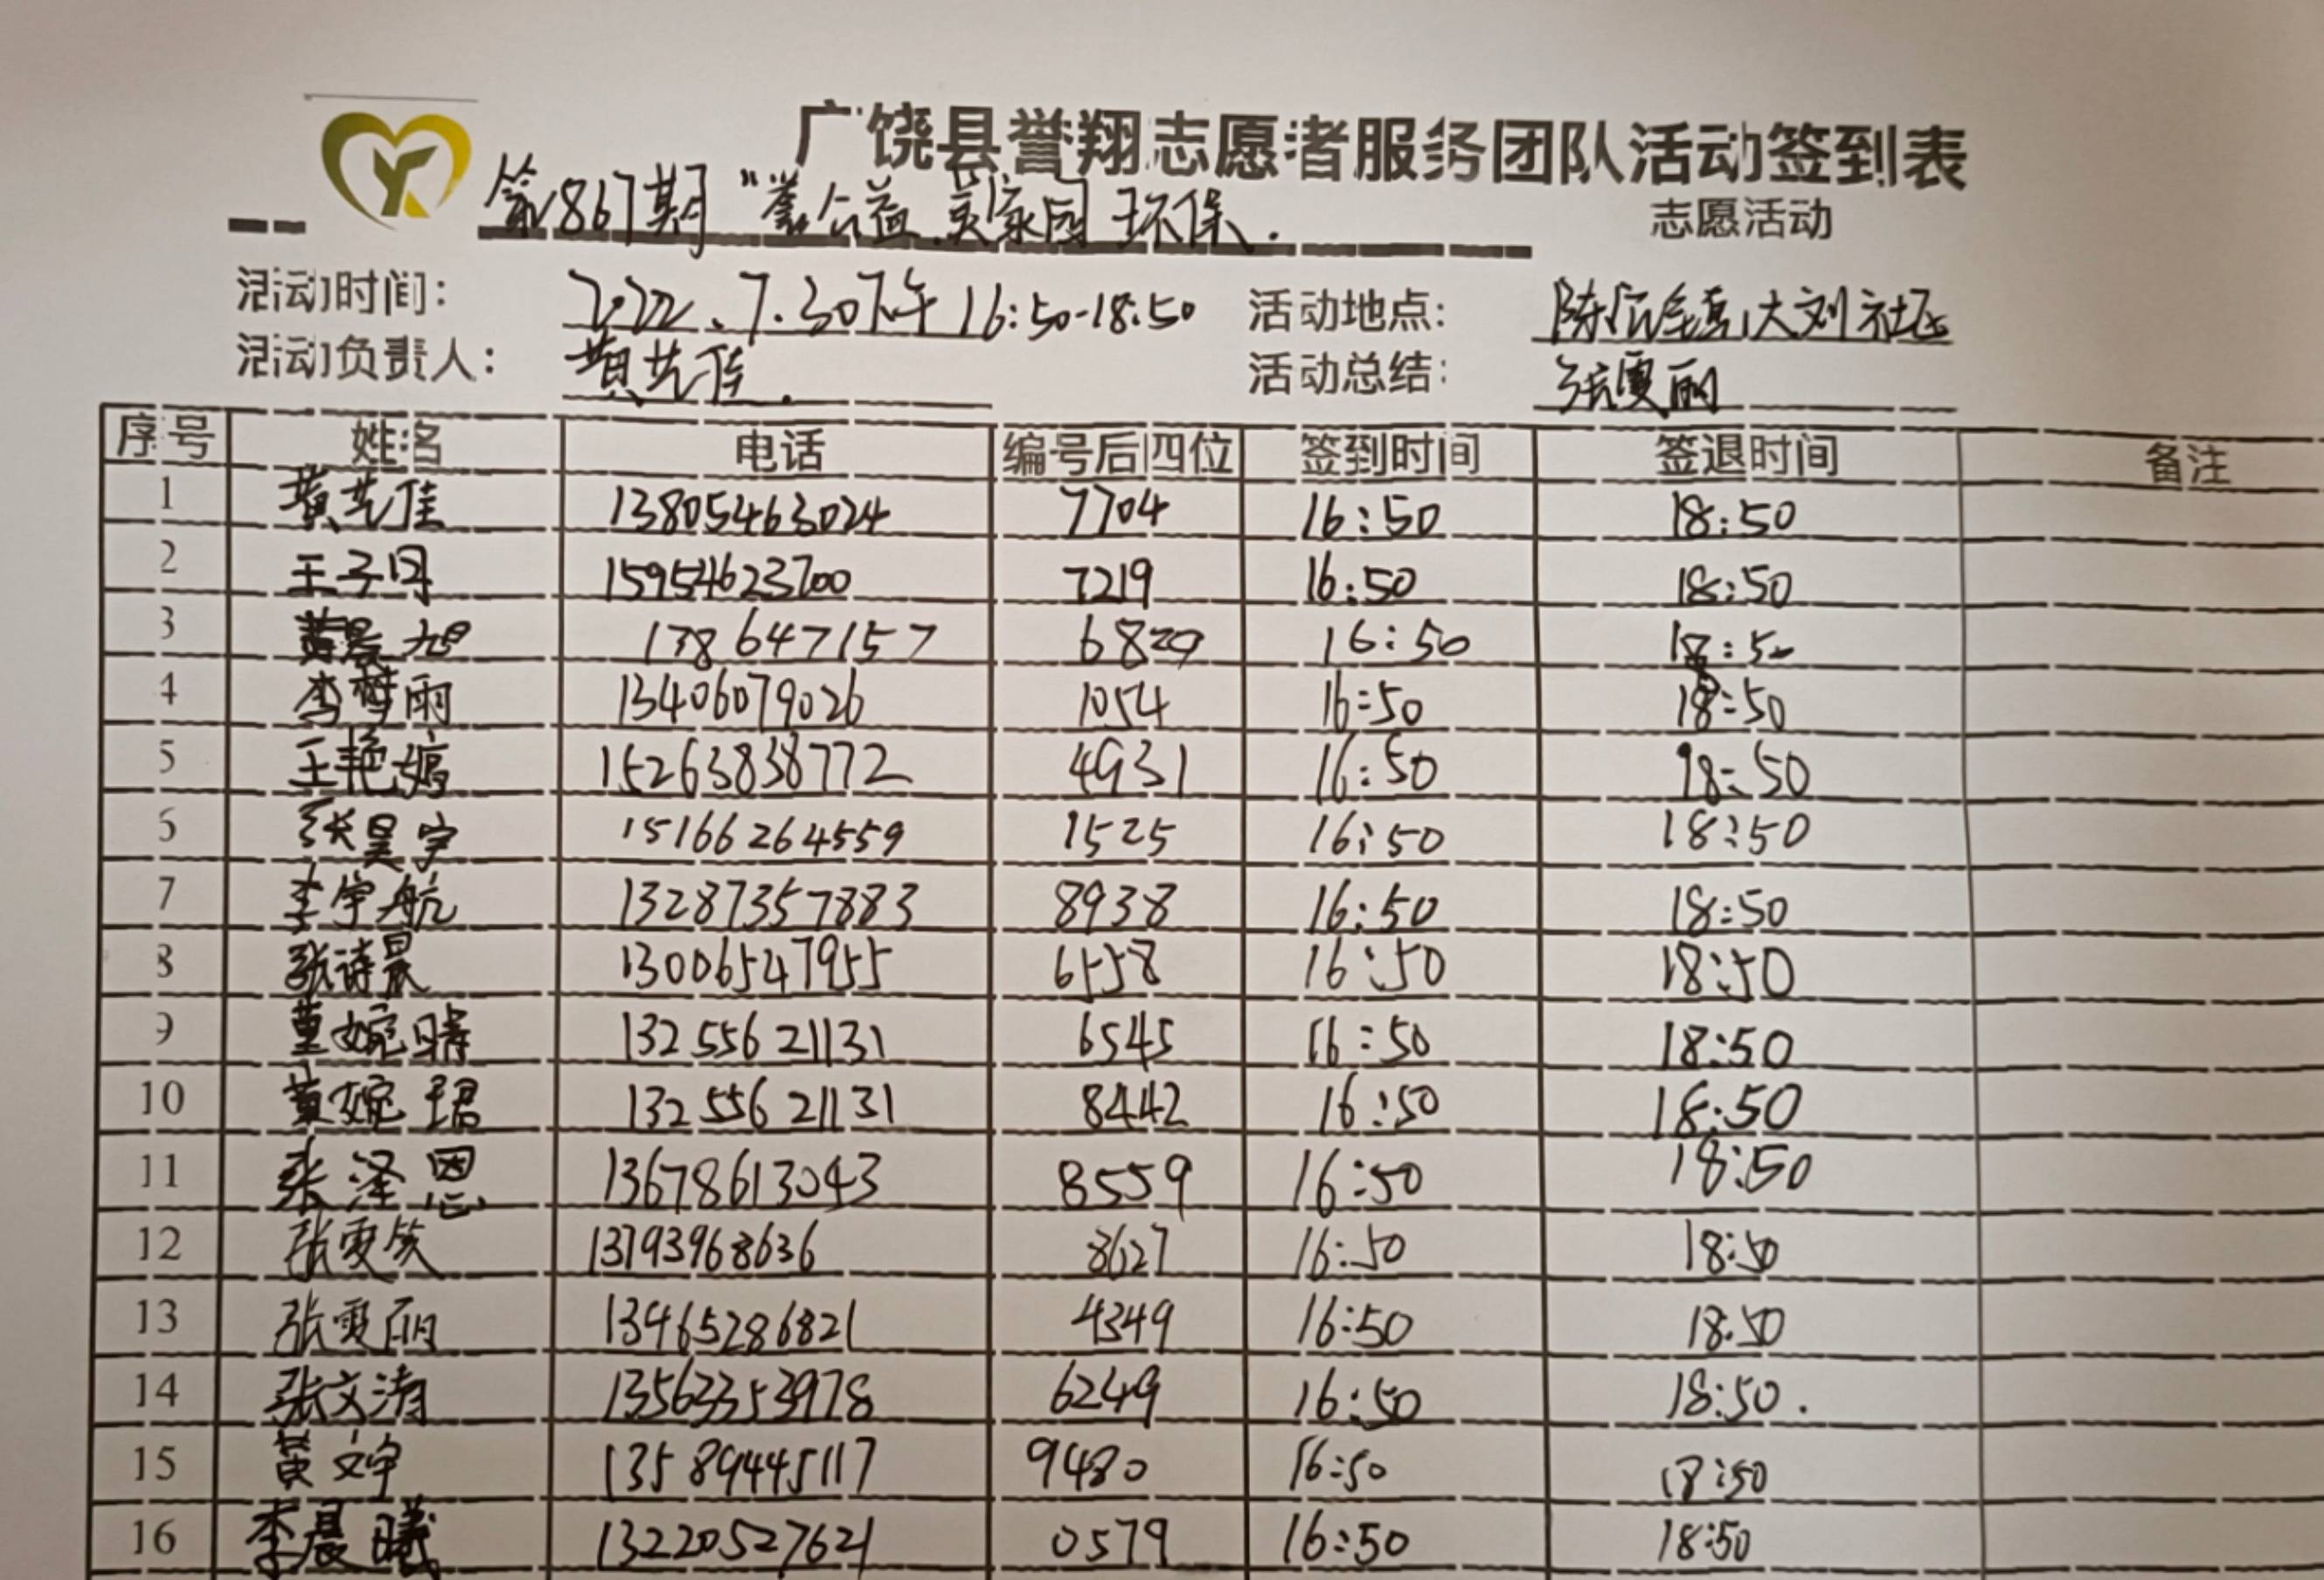 广饶县誉翔志愿者服务团队活动签到表
第867期 " 公益 美家园 环保. 志愿活动
活动时间: 2022.7.30下午16:50-18:50 活动地点: 大刘社区
活动负责人: 黄艺佳. 活动总结: 张雯丽
序号 姓名 电话 编号后四位 签到时间 签退时间 备注
1 黄艺佳 13805463024 7704 16:50 18:50
2 王子丹 15954623700 7219 16:50 18:50
3 黄晨旭 138647157 6829 16:50 18:50
4 李梦雨 13406079026 1054 16:50 18:50
5 王艳婷 15263838772 4931 16:50 18:50
6 张昊宇 15166264559 1525 16:50 18:50
7 李宇航 13287357883 8938 16:50 18:50
8 张诗晨 13006547955 6558 16:50 18:50
9 董婉晴 13255621131 6545 16:50 18:50
10 黄婉珺 13255621131 8442 16:50 18:50
11 张泽恩 13678613043 8559 16:50 18:50
12 张雯笑 13793968636 8627 16:50 18:50
13 张雯丽 13465286821 4349 16:50 18:50
14 张文涛 13563353978 6249 16:50 18:50.
15 黄文宇 13589445117 9480 16:50 18:50
16 李晨曦 13220527621 0579 16:50 18:50